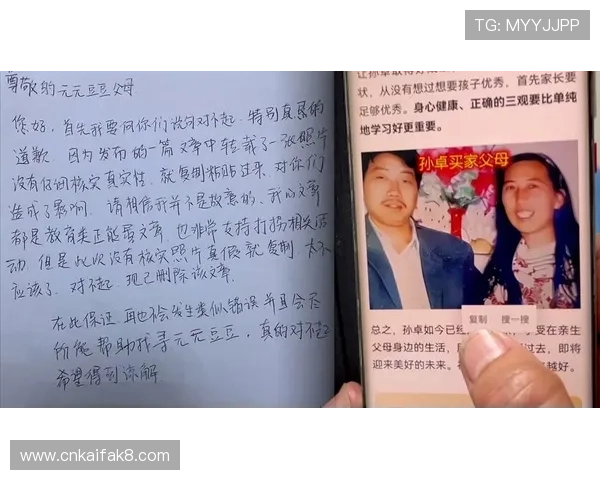 TG: MYYJJPP
尊敬的元元豆豆父母
您好，首先我要向你们说句对不起，特别真恳的
道歉，因为发布的一篇文章中转载了一张照片
没有仔细核实真实性，就复制粘贴过来，对你们
造成了影响，请相信我并不是故意的，我的文章
都是教育类正能量文章，也非常支持打拐相关活
动，但是此次没有核实照片真假就复制，太不
应该了，对不起，现已删除该文章。
在此保证，再也不会发生类似错误并且会尽
所能帮助找寻元元豆豆，真的对不起
希望得到谅解
让孙卓取得好成
状，从没有想过想要孩子优秀，首先家长要
足够优秀。身心健康、正确的三观要比单纯
地学习好更重要。
孙卓买家父母
复制 搜一搜
总之，孙卓如今已经 享受在亲生
父母身边的生活， 过去，即将
迎来美好的未来。 越好。
www.cnkaifak8.com